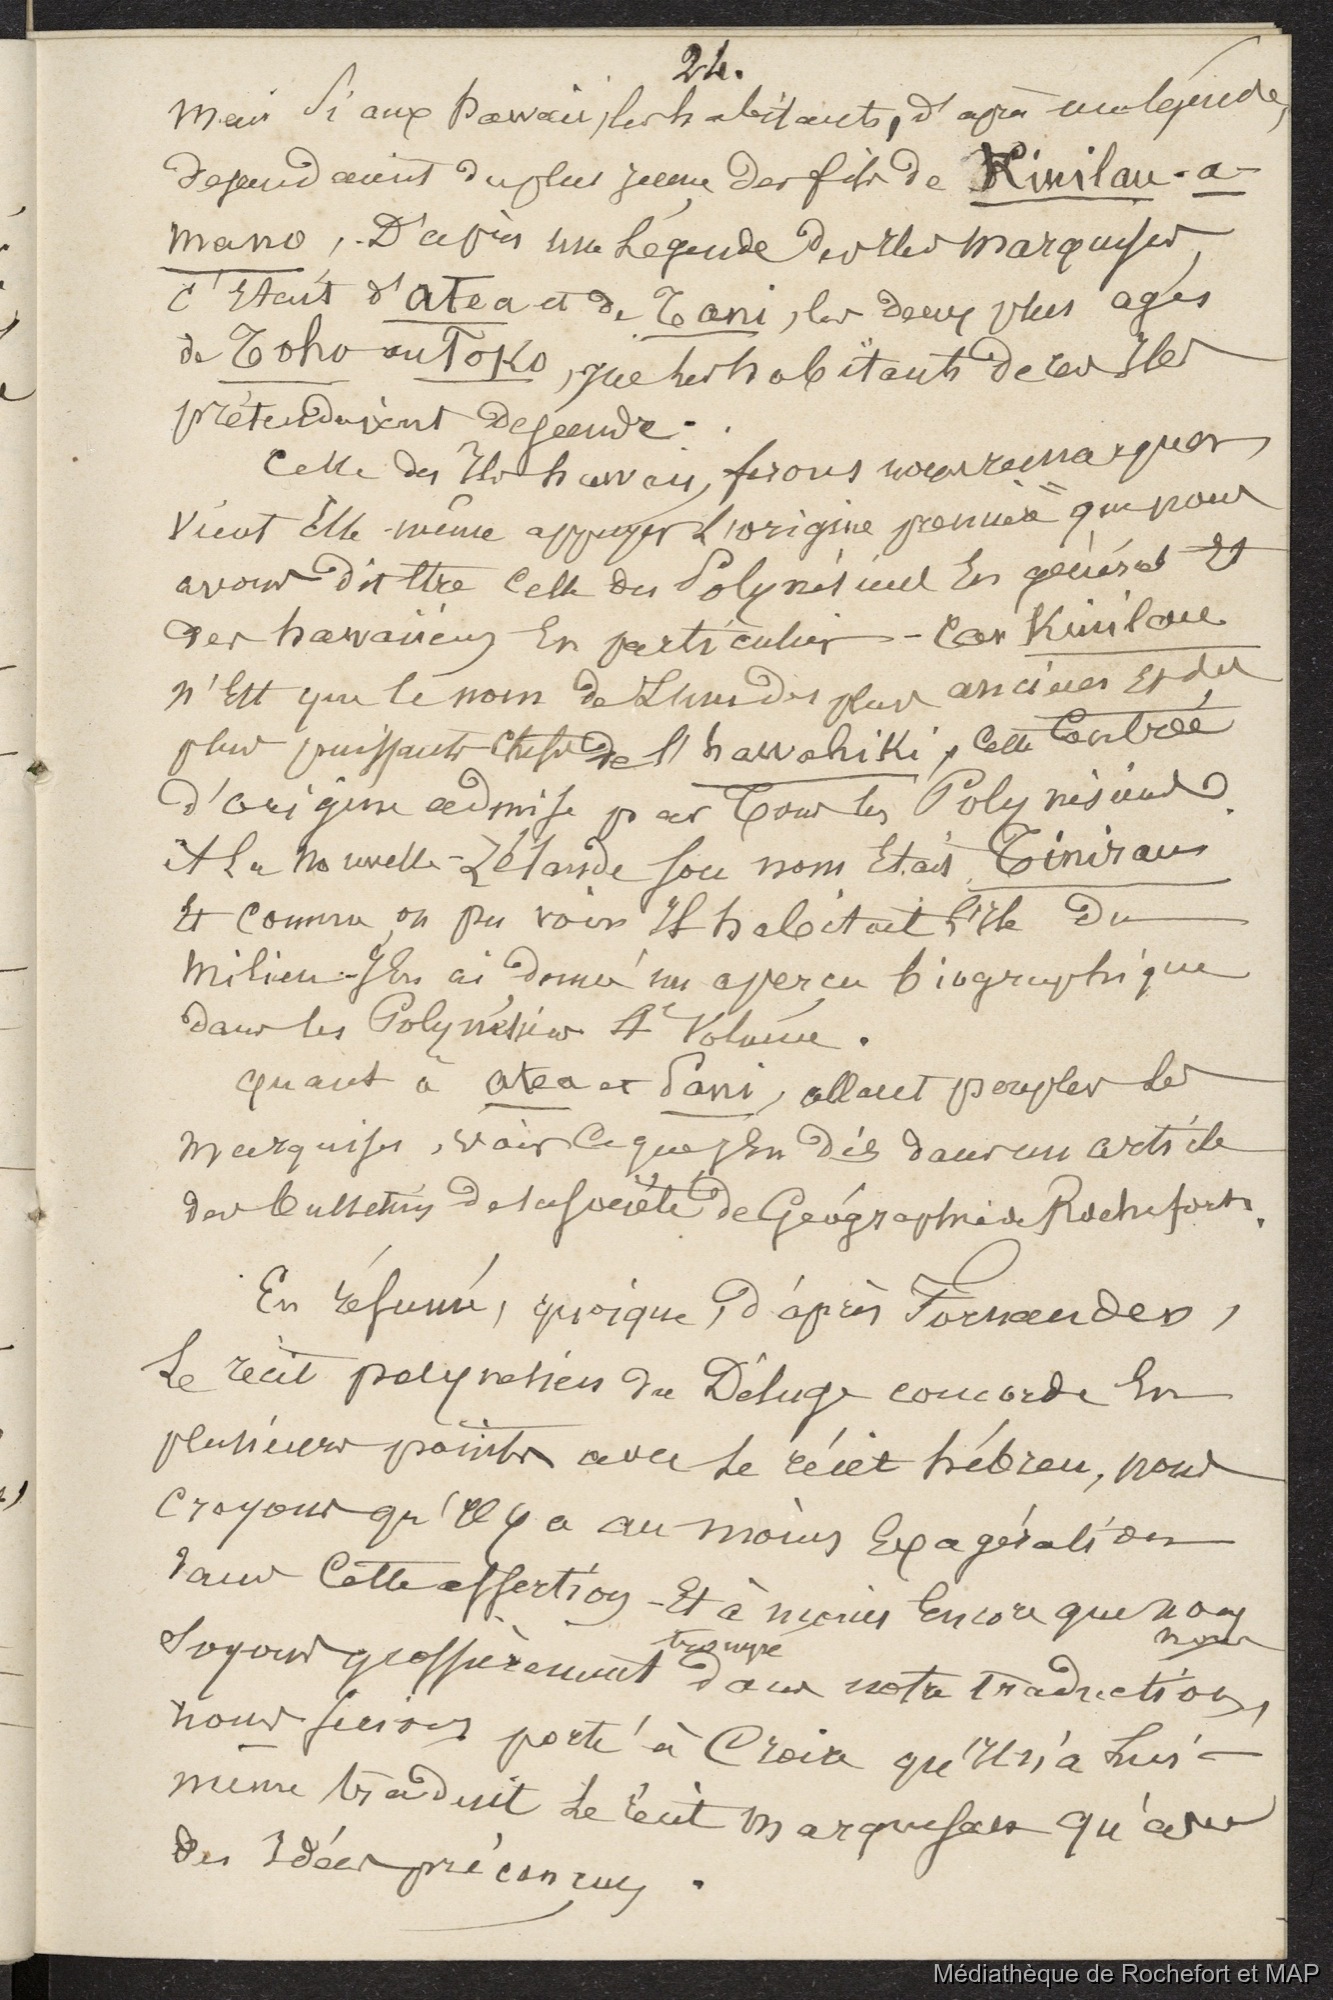 24.
Mais si aux hawaii, les habitants, d'après une légende,
descendaient du plus jeune des fils de Kinilau-a-
mano, - D'après une Légende des Iles Marquises,
c'Etait d'Atea et de Tani, les deux plus agés
de Toho ou Toko, que les habitants de ces Iles
prétendaient descendre.
Celle des Iles hawaii, ferons nous remarquer,
vient Elle-même appuyer l'origine première que nous
avons dit être celle des Polynésiens En général Et
des hawaiiens En particulier - Car Kinilau
n'Est que le nom de L'un des plus anciens Et des
plus puissants chefs de l'hawahiki, cette Contrée
d'origine admise par Tous les Polynésiens.
A La Nouvelle-Zélande son nom Etait Tinirau
Et comme on pu voir Il habitait l'Ile du
Milieu - J'En ai donné un aperçu biographique
dans les Polynésiens 4e Volume.
quant à Atea et Tani, allant peupler les
Marquises, voir ce que j'En dis dans un article
des bulletins de la Société de Géographie de Rochefort.
En résumé, quoique, d'après Fornander,
Le récit polynésien du Déluge concorde En
plusieurs points avec le récit hébreu, nous
croyons qu'Il y a au moins Exagération
dans Cette assertion - Et à moins Encore que nous
nous
soyons grossièrement trompé dans notre traduction,
nous serions porté à Croire qu'Il n'a Lui-
même traduit le récit Marquesan qu'avec
des Idées préconçues.
Médiathèque de Rochefort et MAP